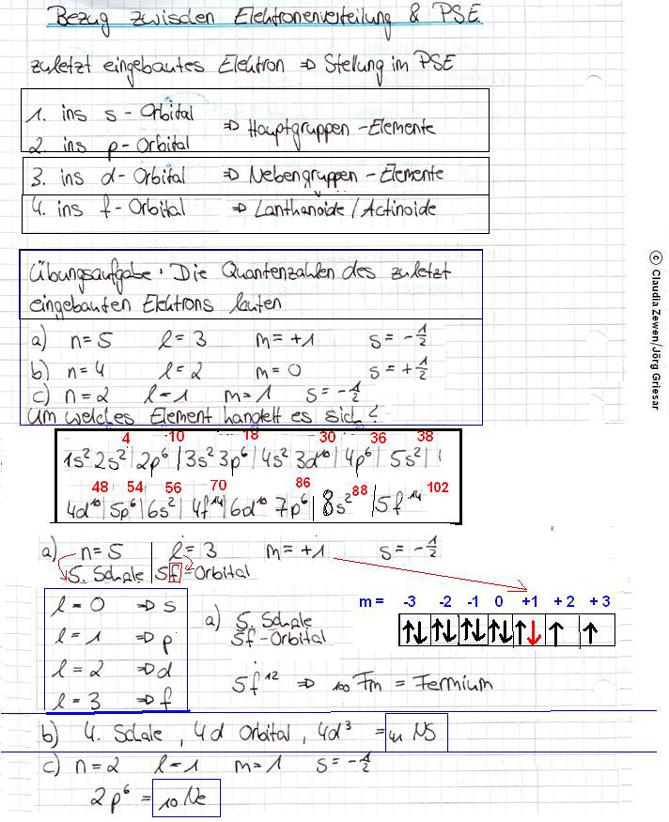 Bezug zwischen Elektronenverteilung & PSE
zuletzt eingebautes Elektron ⇒ Stellung im PSE
1. ins s-Orbital
2. ins p-Orbital
⇒ Hauptgruppen-Elemente
3. ins d-Orbital ⇒ Nebengruppen-Elemente
4. ins f-Orbital ⇒ Lanthanoide/Actinoide
Übungsaufgabe: Die Quantenzahlen des zuletzt
eingebauten Elektrons lauten
a) n=5 l=3 m=+1 s=-1/2
b) n=4 l=2 m=0 s=+1/2
c) n=2 l=1 m=1 s=-1/2
Um welches Element handelt es sich?
4 10 18 30 36 38
1s² 2s² | 2p⁶ | 3s² 3p⁶ | 4s² 3d¹⁰ | 4p⁶ | 5s² |
48 54 56 70 86 88 102
4d¹⁰ | 5p⁶ | 6s² | 4f¹⁴ | 6d¹⁰ 7p⁶ | 8s² | 5f¹⁴
a) n=5 | l=3 m=+1 s=-1/2
5. Schale | 5f-Orbital
l=0 ⇒ s
l=1 ⇒ p
l=2 ⇒ d
l=3 ⇒ f
a) 5. Schale
5f-Orbital
m = -3 -2 -1 0 +1 +2 +3
↑↓ ↑↓ ↑↓ ↑↓ ↑↓ ↑ ↑
5f¹² ⇒ ₁₀₀Fm = Fermium
b) 4. Schale, 4d Orbital, 4d³ = ₄₁NS
c) n=2 l=1 m=1 s=-1/2
2p⁶ = ₁₀Ne
© Claudia Zewen/Jörg Griesar